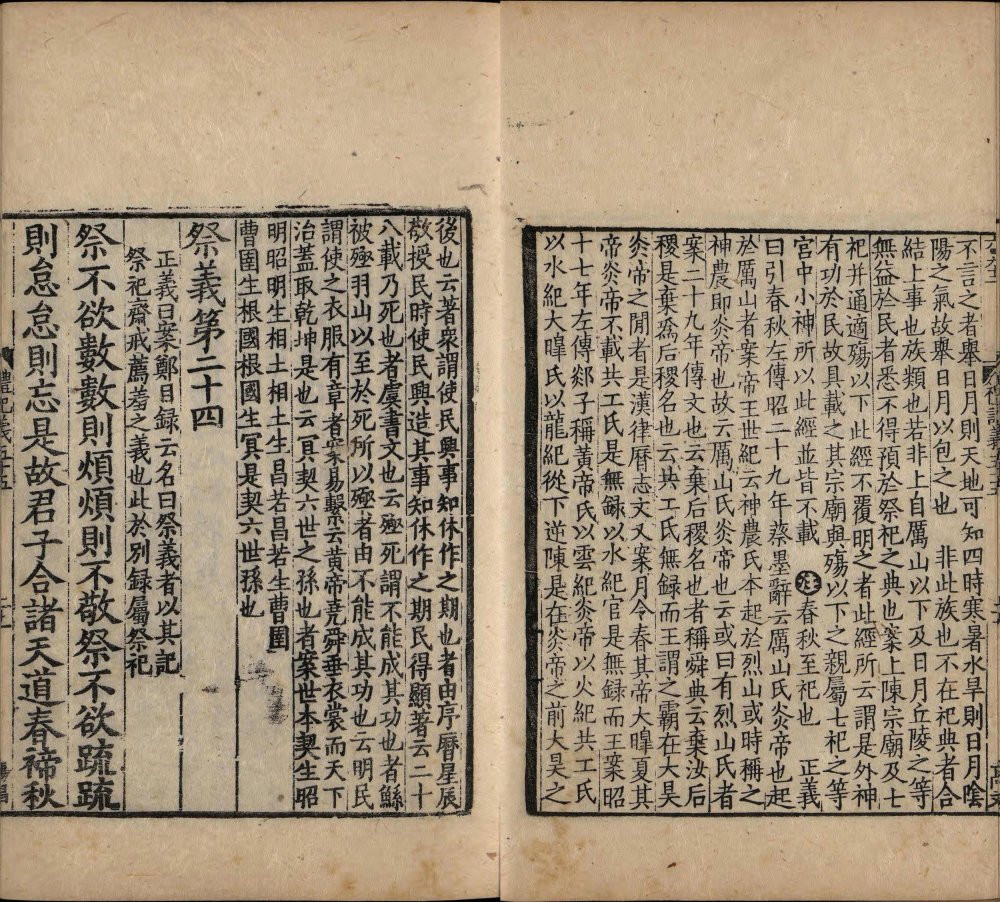 不言之者舉日月則天地可知四時寒暑水旱則日月陰
陽之氣故舉日月以包之也　非此族也不在祀典者合
結上事也族類也若非上自厲山以下及日月丘陵之等
無益於民者悉不得預於祭祀之典也案上陳宗廟及七
祀并通適殤以下此經不覆明之者此經所云謂是外神
有功於民故具載之其宗廟與殤以下之親屬七祀之等
宮中小神所以此經並皆不載　注春秋至祀也　正義
曰引春秋左傳昭二十九年蔡墨辭云厲山氏炎帝也起
於厲山者案帝王世紀云神農氏本起於烈山或時稱之
神農即炎帝也故云厲山氏炎帝也云或曰有烈山氏者
案二十九年傳文也云棄后稷名也者稱舜典云棄汝后
稷是棄爲后稷名也云共工氏無録而王謂之霸在大昊
炎帝之閒者是漢律曆志文又案月令春其帝大皥夏其
帝炎帝不載共工氏是無録以水紀官是無録而王案昭
十七年左傳郯子稱黄帝氏以雲紀炎帝以火紀共工氏
以水紀大皥氏以龍紀從下逆陳是在炎帝之前大昊之
後也云著衆謂使民興事知休作之期也者由序曆星辰
敬授民時使民興造其事知休作之期民得顯著云二十
八載乃死也者虞書文也云殛死謂不能成其功也者鯀
被殛羽山以至於死所以殛者由不能成其功也云明民
謂使之衣服有章者案易繫云黄帝堯舜垂衣裳而天下
治蓋取乾坤是也云冥契六世之孫也者案世本契生昭
明昭明生相土相土生昌若昌若生曹圉
曹圉生根國根國生冥是契六世孫也
祭義第二十四
正義曰案鄭目録云名曰祭義者以其記
祭祀齋戒薦羞之義也此於別録屬祭祀
祭不欲數數則煩煩則不敬祭不欲疏疏
則怠怠則忘是故君子合諸天道春禘秋
禮記義五十五